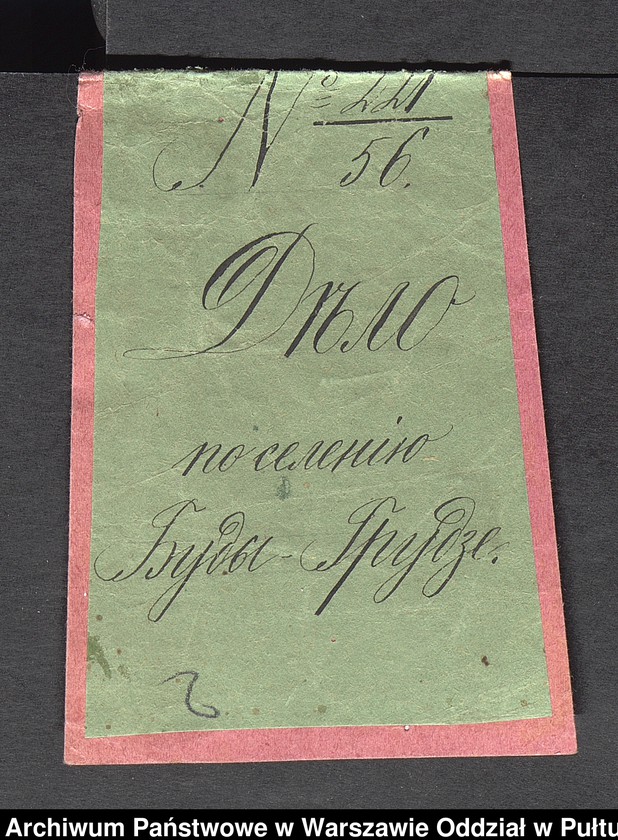 № 221
56.
Дѣло
по селенію
Буды-Грудзе.
Archiwum Państwowe w Warszawie Oddział w Pułtu